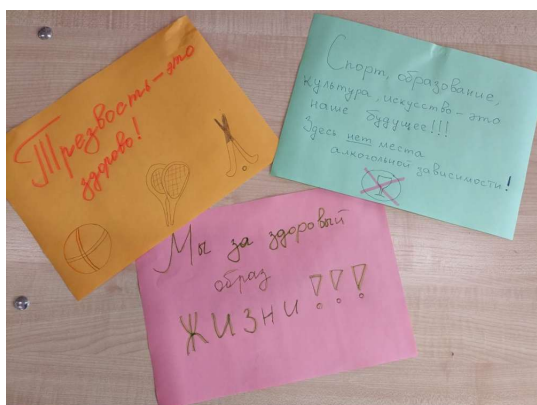 Трезвость – это
здорово!
Спорт, образование,
культура, искусство – это
наше будущее!!!
Здесь нет места
алкогольной зависимости!
Мы за здоровый
образ
жизни!!!